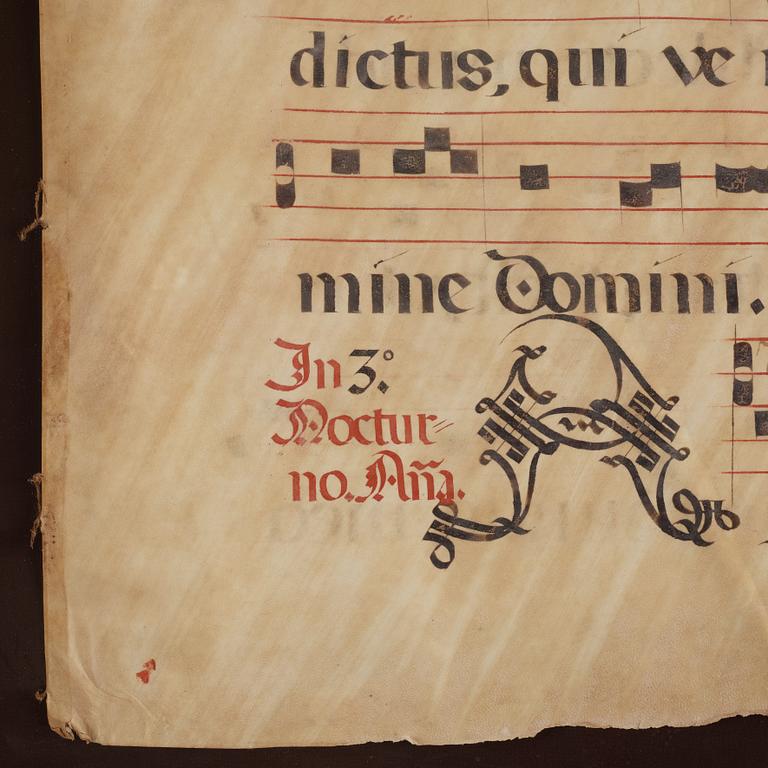 dictus, qui ve
mine Domini.
In 3.º
Noctur-
no. Aña.
A